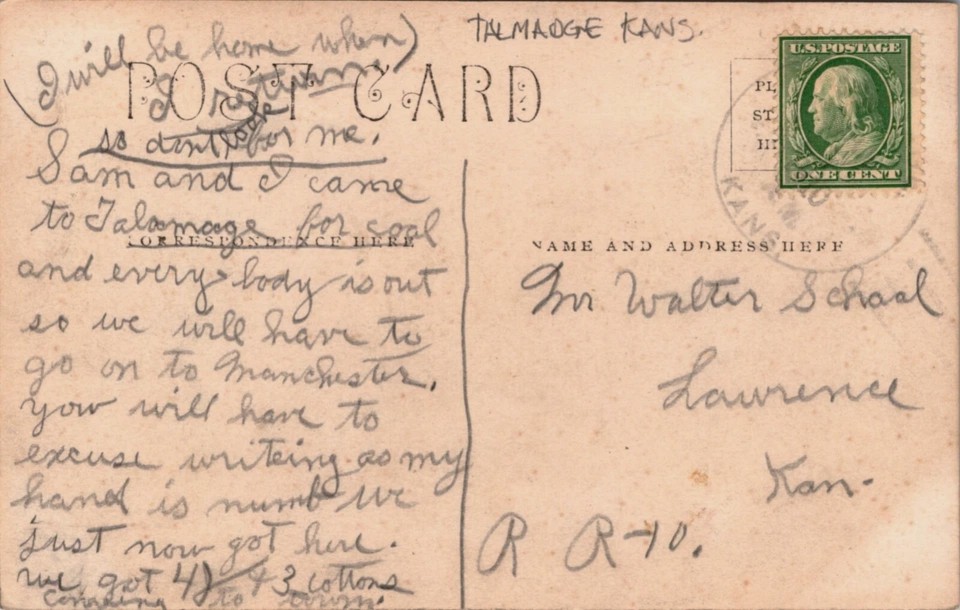 TALMADGE KANS.
(I will be home when)
I return
so dont look for me.
POST CARD
Sam and I came
to Talamage for coal
CORRESPONDENCE HERE
and every body is out
so we will have to
go on to Manchester.
you will have to
excuse writeing as my
hand is numb we
just now got here.
we got 4 + 3 cottons
comeing to town.
U.S. POSTAGE
ONE CENT
PL
ST
HE
KANS.
NAME AND ADDRESS HERE
Mr Walter School
Lawrence
Kan-
R R-10.